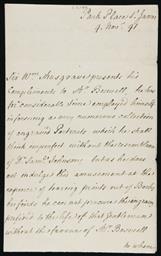 Park Place St. James
4. Nov.r 87
Sir Wm. Musgrave presents his
Compliments to Mr. Boswell, he has
for considerable time employed himself
in forming a very numerous collection
of engraved Portraits which he shall
think imperfect without the resemblance
of Dr. Saml. Johnson; but as he does
not indulge this amusement at the
expence of tearing prints out of Books
he finds he can not procure the engraving
prefixed to the life of that Gentleman
without the favour of Mr. Boswell
to whom